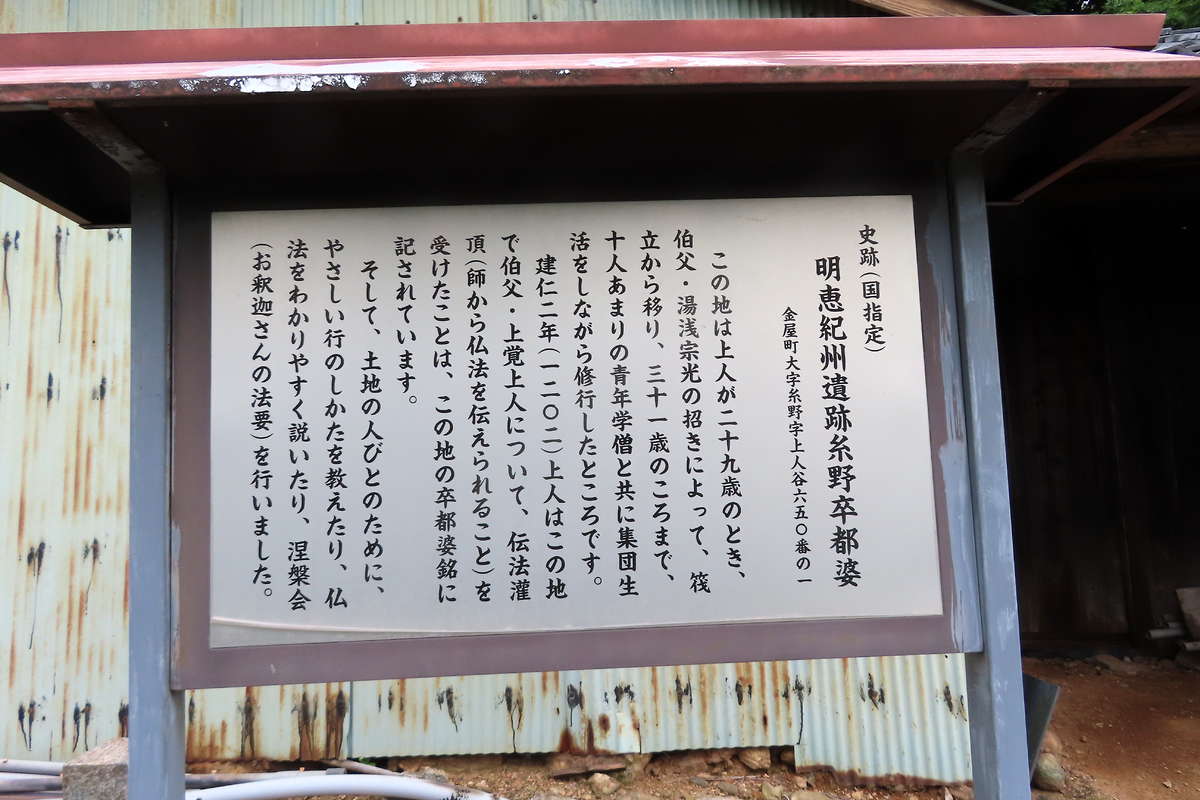 史跡(国指定)
明恵紀州遺跡糸野卒都婆
金屋町大字糸野字上人谷六五〇番の一
この地は上人が二十九歳のとき、
伯父・湯浅宗光の招きによって、筏
立から移り、三十一歳のころまで、
十人あまりの青年学僧と共に集団生
活をしながら修行したところです。
建仁二年(一二〇二)上人はこの地
で伯父・上覚上人について、伝法灌
頂(師から仏法を伝えられること)を
受けたことは、この地の卒都婆銘に
記されています。
そして、土地の人びとのために、
やさしい行のしかたを教えたり、仏
法をわかりやすく説いたり、涅槃会
(お釈迦さんの法要)を行いました。